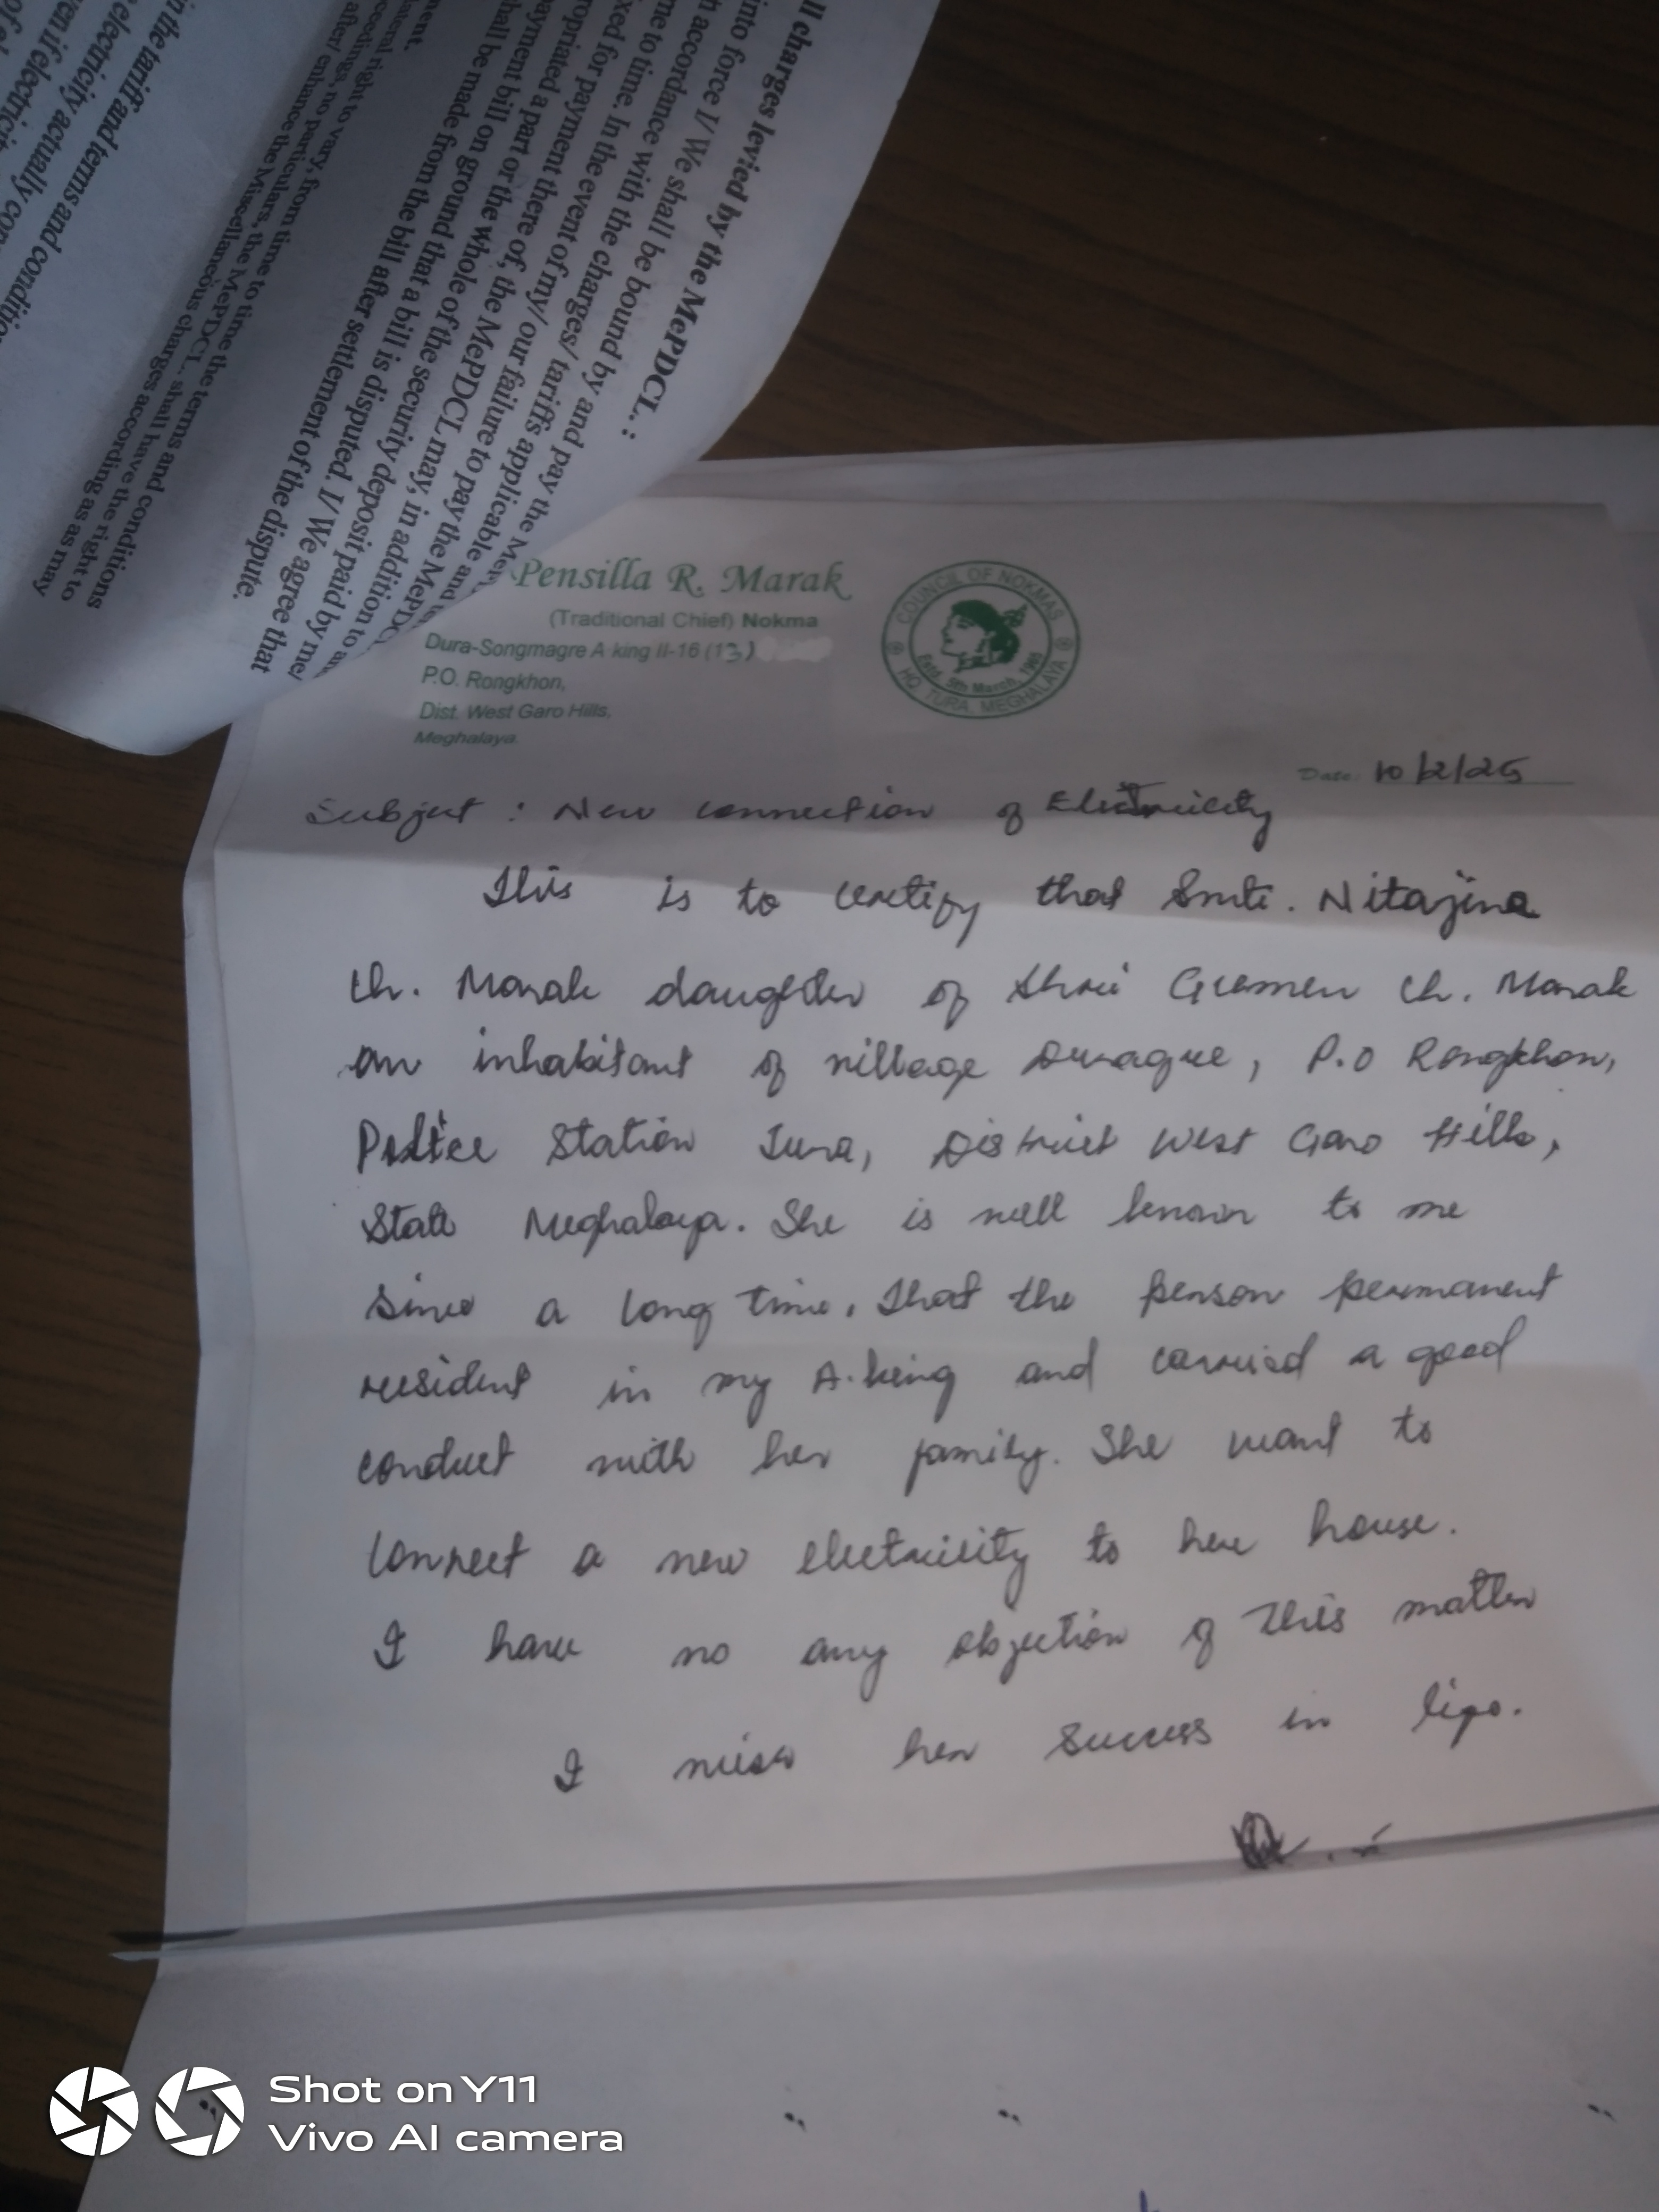 ll charges levied by the MePDCL. :
into force I/ We shall be bound by and pay the
accordance with the charges/ tariffs applicable and
me to time. In the event of my/ our failure to pay the MePDCL
xed for payment there of, the MePDCL may, in addition to
ropriated a part or the whole of the security deposit paid by me/
ayment bill on ground that a bill is disputed. I/ We agree that
hall be made from the bill after settlement of the dispute.
ment.
lateral right to vary, from time to time the terms and conditions
ceedings, no particulars, the MePDCL. shall have the right to
after/ enhance the Miscellaneous charges according as as may
in the tariff and terms and conditio
electricity actually con
ven if electrici
Pensilla R. Marak
(Traditional Chief) Nokma
Dura-Songmagre A·king II-16 (13)
P.O. Rongkhon,
Dist. West Garo Hills,
Meghalaya.
COUNCIL OF NOKMAS
Estd. 5th March, 1965
HQ. TURA, MEGHALAYA
Date: 10/2/25
Subject : New connection of Electricity
This is to certify that Smti. Nitajina
Ch. Marak daughter of Shri Ch. Marak
an inhabitant of village P.O Rongkhon,
Police Station Tura, District West Garo Hills,
State Meghalaya. She is well known to me
since a long time. That the person permanent
resident in my A·king and carried a good
conduct with her family. She want to
connect a new electricity to her house.
I have no any objection of This matter
I her success in life.
Shot on Y11
Vivo AI camera